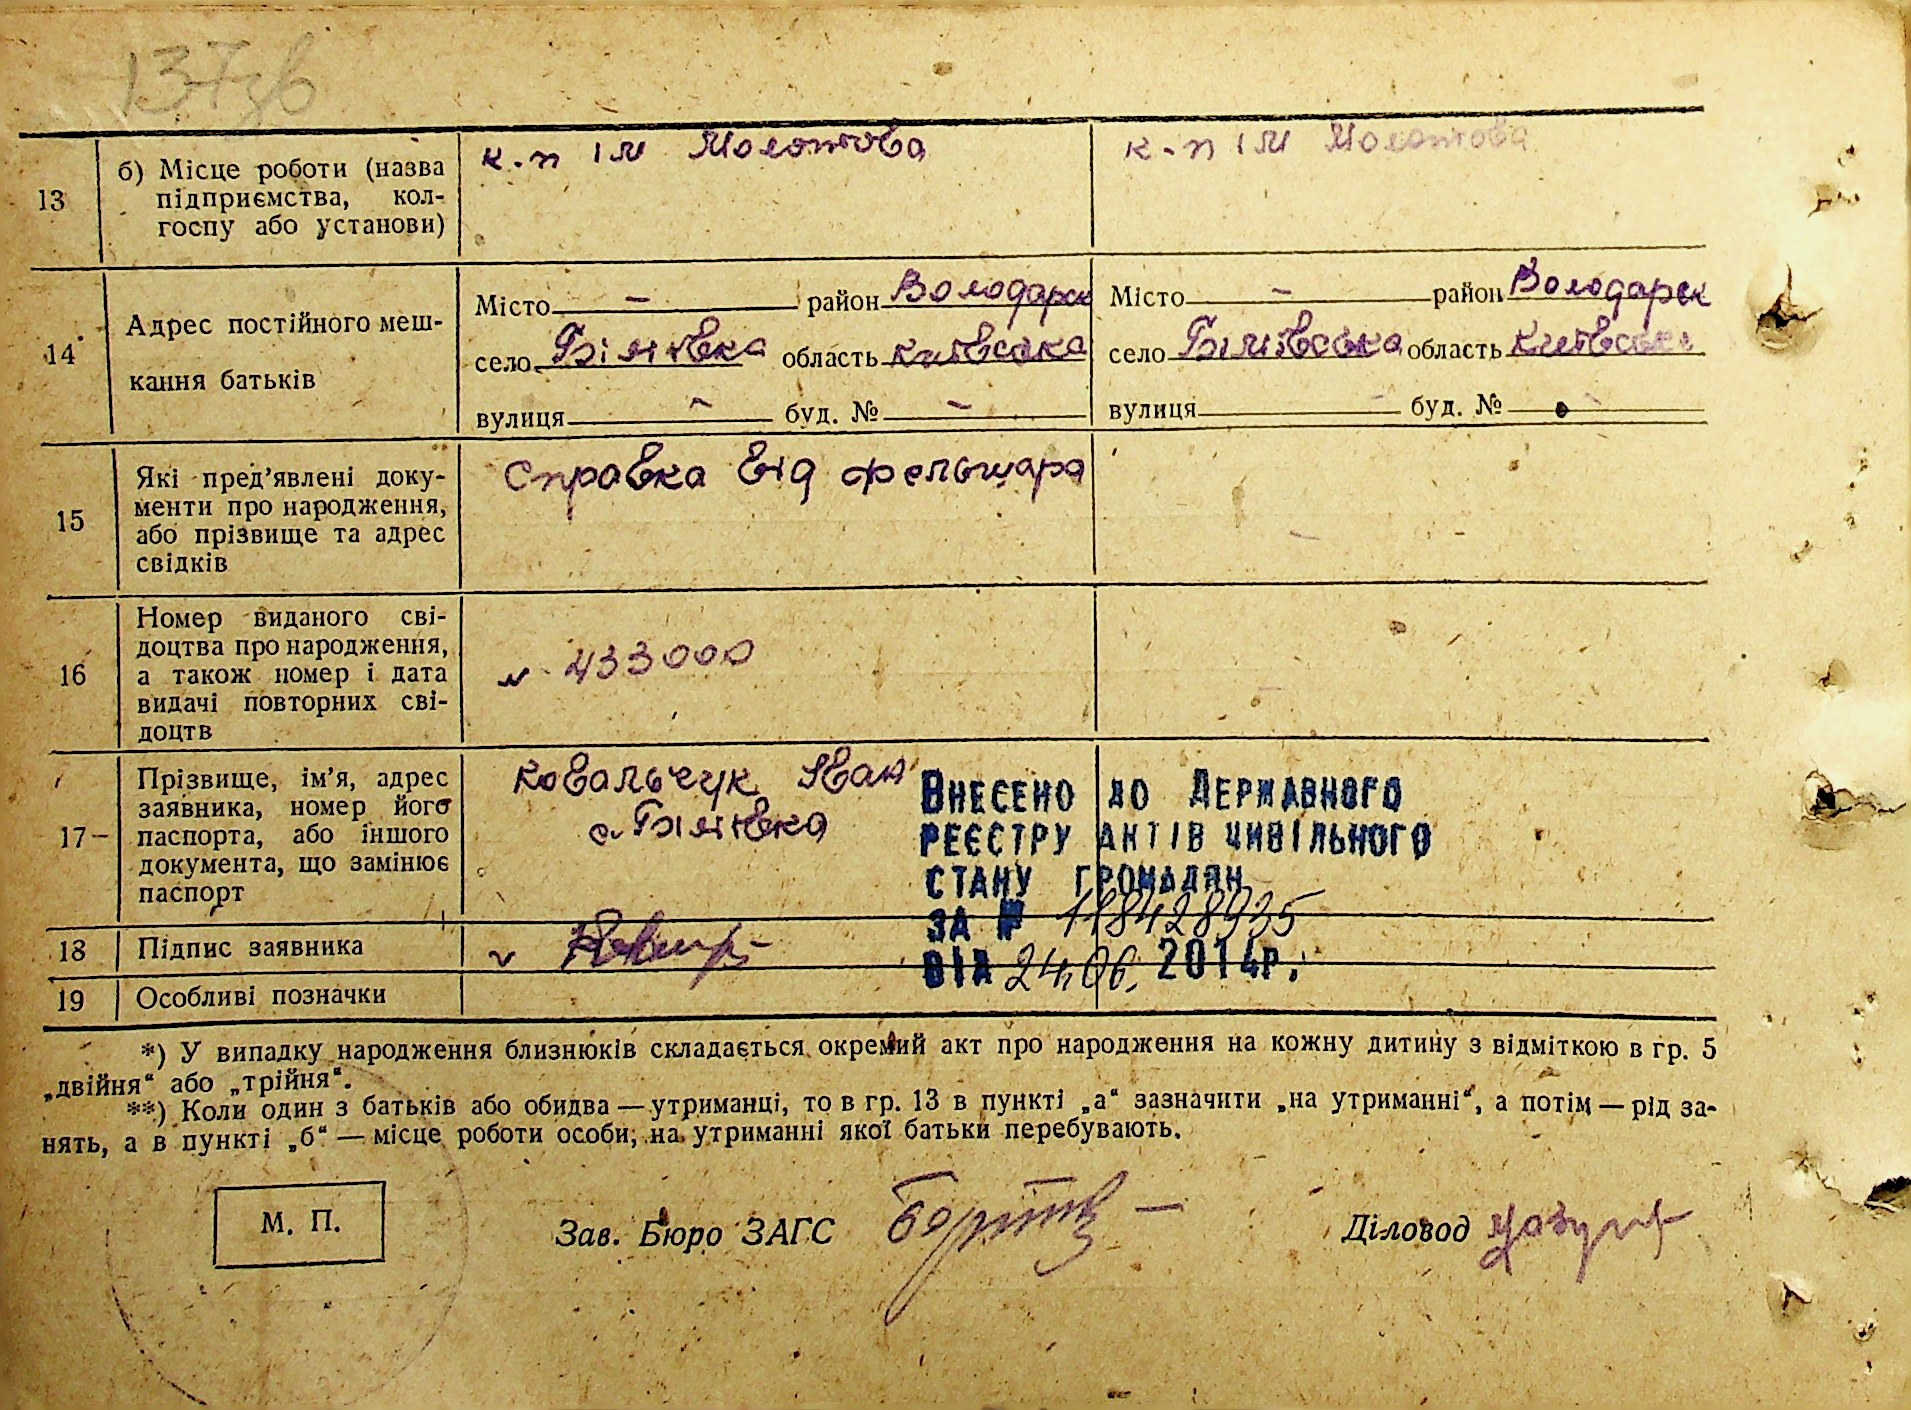 137зв
13
б) Місце роботи (назва
підприємства, кол-
госпу або установи)
к-п ім Молотова
к-п ім Молотова
14
Адрес постійного меш-
кання батьків
Місто – район Володарск
село Біліївка область київська
вулиця – буд. № –
Місто – район Володарск
село область київська
вулиця – буд. № –
15
Які пред'явлені доку-
менти про народження,
або прізвище та адрес
свідків
Справка від фельшара
16
Номер виданого сві-
доцтва про народження,
а також номер і дата
видачі повторних сві-
доцтв
№ 433000
17
Прізвище, ім'я, адрес
заявника, номер його
паспорта, або іншого
документа, що замінює
паспорт
Ковальчук Іван
с. Біліївка
Внесено до Державного
реєстру актів цивільного
стану громадян
за № 118428935
від 24.06. 2014р.
18
Підпис заявника
19
Особливі позначки
*) У випадку народження близнюків складається окремий акт про народження на кожну дитину з відміткою в гр. 5
„двійня“ або „трійня“.
**) Коли один з батьків або обидва — утриманці, то в гр. 13 в пункті „а“ зазначити „на утриманні“, а потім — рід за-
нять, а в пункті „б“ — місце роботи особи, на утриманні якої батьки перебувають.
М. П.
Зав. Бюро ЗАГС
Діловод